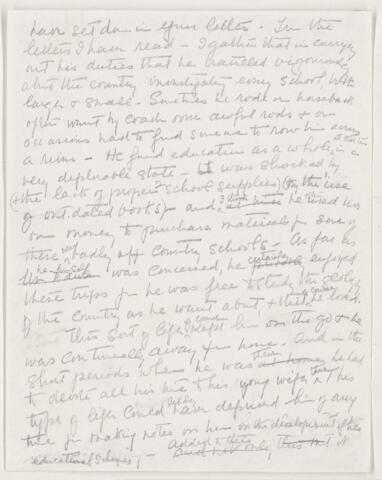 have set down in your letter - In the
letters I have read - I gather that in carrying
out his duties that he travelled vigourously
abt the country investigating every school, both
large & small. Sometimes he rode on horseback
often went by coach over awful rods & on
occasions had to find someone to row him across
a river - He found education as a whole, in a
very deplorable state - was shocked by
(the lack of proper school supplies) (by the use
of out. dated books) and he used his
own money to purchase materials for some of
these very badly off country schools - As far as
he himself was concerned, he certainly enjoyed
these trips for he was free to study the geology
of the country as he went about, & this he loved.
This sort of life kept him on the go & he
was continually away from home. And in the
short periods when he was at home, he had
to devote all his time to his young wife, & this
type of life could have deprived him of any
time for making notes on him on the development of the
educational schemes / - Added to this and not only this